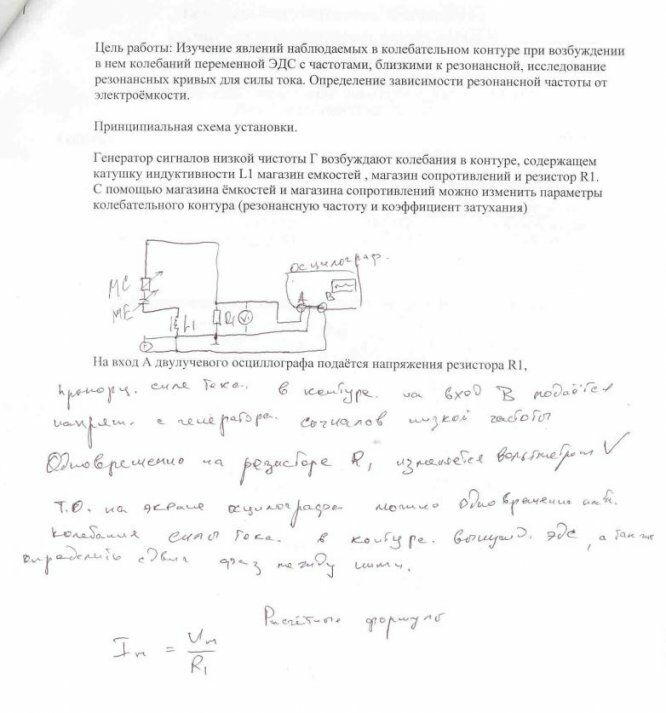 Цель работы: Изучение явлений наблюдаемых в колебательном контуре при возбуждении
в нем колебаний переменной ЭДС с частотами, близкими к резонансной, исследование
резонансных кривых для силы тока. Определение зависимости резонансной частоты от
электроёмкости.
Принципиальная схема установки.
Генератор сигналов низкой чистоты Г возбуждают колебания в контуре, содержащем
катушку индуктивности L1 магазин емкостей , магазин сопротивлений и резистор R1.
С помощью магазина ёмкостей и магазина сопротивлений можно изменить параметры
колебательного контура (резонансную частоту и коэффициент затухания)
осцилограф.
МС
А
В
МЕ
L1
R1
V
Г
На вход А двулучевого осциллографа подаётся напряжения резистора R1,
пропорц. силе тока. в контуре. на вход В подаётся
напряж. с генератора. сигналов низкой частоты
Одновременно на резисторе R1 измеряется вольтметром V
Т.О. на экране осцилографа можно одновременно
колебания силы тока. в контуре. вынужд. ЭДС, а также
определить сдвиг фаз между ними.
Расчётные формулы
Im = Um
R1